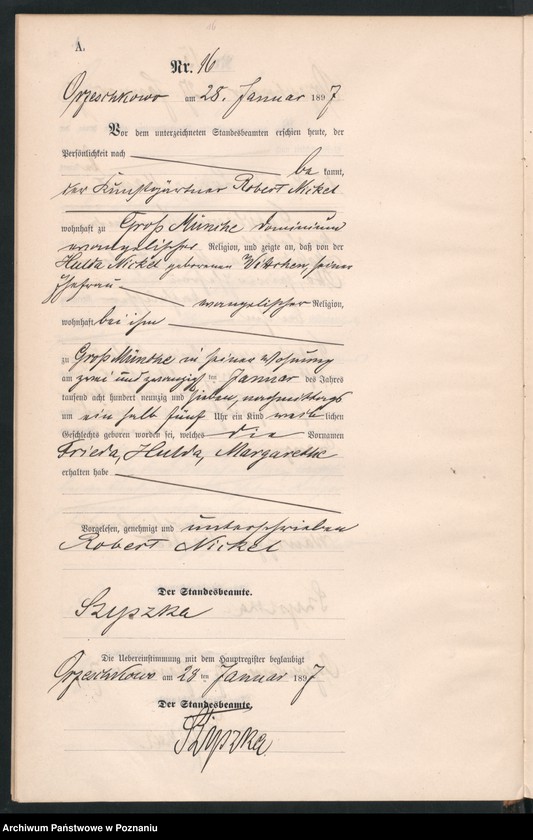 16
A.
Nr. 16
Orzeschkowo am 28. Januar 1897
Vor dem unterzeichneten Standesbeamten erschien heute, der
Persönlichkeit nach be kannt,
der Kunstgärtner Robert Nickel
wohnhaft zu Groß Münche Dominium
evangelischer Religion, und zeigte an, daß von der
Hulda Nickel geborenen seiner
Ehefrau evangelischer Religion,
wohnhaft bei ihm
zu Groß Münche in seiner Wohnung
am zwei und zwanzigsten Januar des Jahres
tausend acht hundert neunzig und sieben, nachmittags
um ein halb fünf Uhr ein Kind weib lichen
Geschlechts geboren worden sei, welches die Vornamen
Frieda, Hulda, Margarethe
erhalten habe
Vorgelesen, genehmigt und unterschrieben
Robert Nickel
Der Standesbeamte.
Szypzka
Die Uebereinstimmung mit dem Hauptregister beglaubigt
Orzeschkowo am 28 ten Januar 1897
Der Standesbeamte.
Szypzka
Archiwum Państwowe w Poznaniu